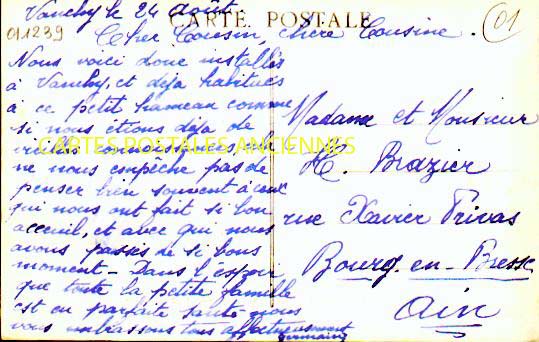 Vanchy le 24 août.
CARTE POSTALE
011239
01
Cher Cousin, chère Cousine.
Nous voici donc installés
à Vanchy, et déjà habitués
à ce petit hameau comme
si nous étions déjà de
vieilles connaissances, cela
CARTES POSTALES ANCIENNES
ne nous empêche pas de
penser bien souvent à ceux
qui nous ont fait si bon
acceuil, et avec qui nous
avons passés de si bons
moment - Dans l'espoir
que toute la petite famille
est en parfaite santé nous
vous embrassons tous affectueusement
Germaine
Madame et Monsieur
H. Brazier
rue Xavier Privas
Bourg-en-Bresse
Ain